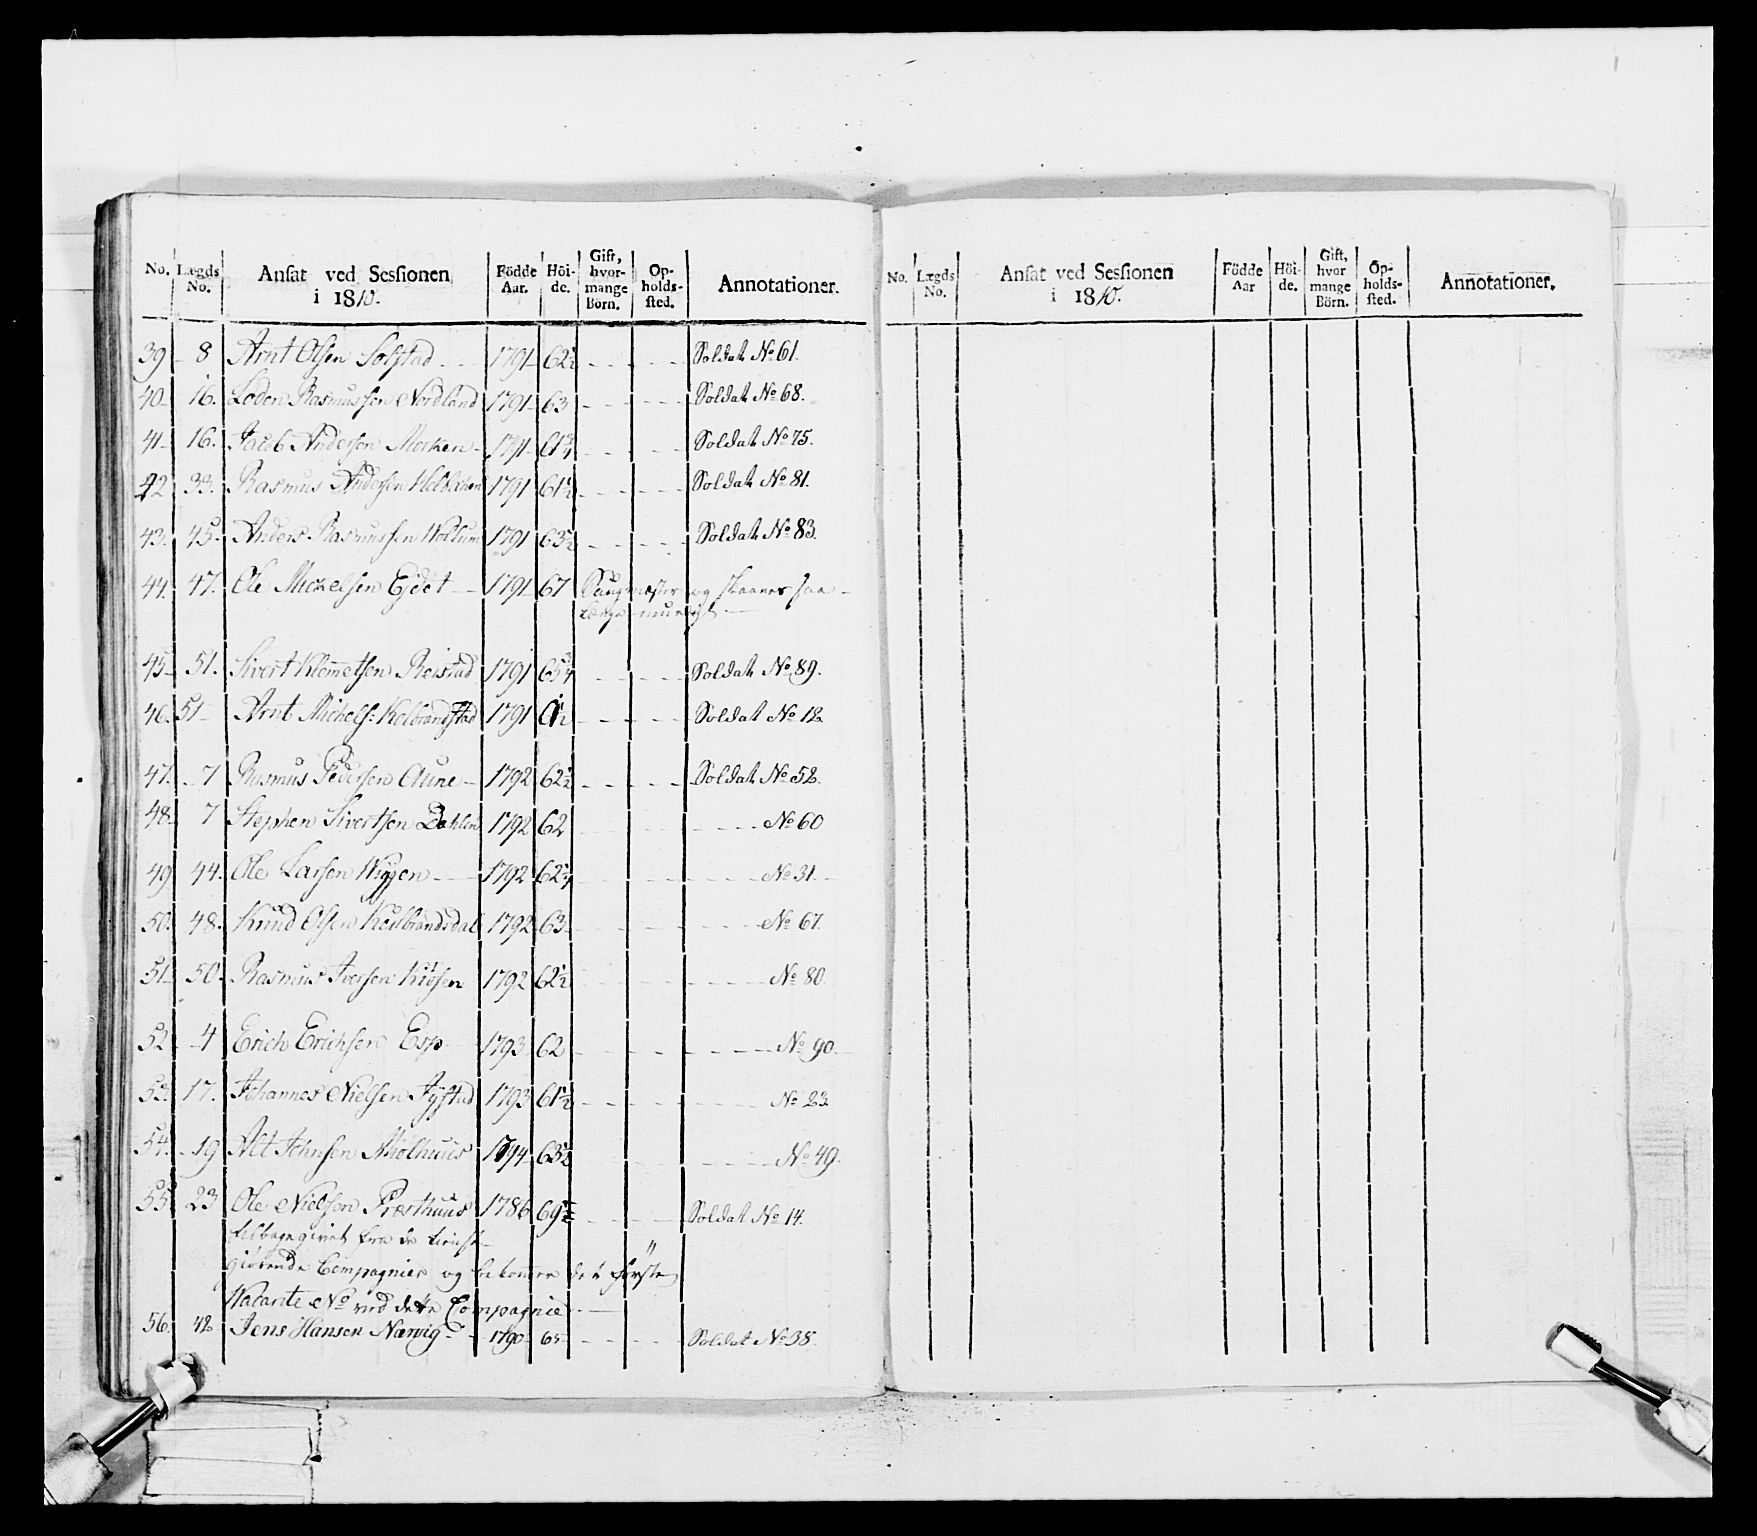 No. Lægds No. Ansat ved Sessionen i 1810. Födde Aar. Höide. Gift, hvormange Börn. Opholdssted. Annotationer.
39 8 Arnt Olsen Solstad 1791 62½ Soldat No 61.
40 16. Loden Rasmussen Nordland 1791 63 Soldat No 68.
41 16. Jacob Andersen Morken 1791 61¾ Soldat No 75.
42 33. Rasmus Andersen 1791 61½ Soldat No 81.
43. 45. Anders Rasmussen Wollum 1791 63½ Soldat No 83.
44. 47. Ole Mickelsen Ejdet 1791 67 Saugmester og skaanes saa
længe mueligt
45 51. Sivert Klemetsen Reistad 1791 65¾ Soldat No 89.
46. 51 Arnt Michels: Kolbrandstad 1791 Soldat No 12.
47. 7 Rasmus Pedersen Aune 1792 62½ Soldat No 52.
48. 7 Stephen Sivertsen Dahlen 1792 62 No 60
49 44. Ole Larsen Wiggen 1792 62¼ No 31
50. 48. Knud Olsen Kolbrandsdal 1792 63 No 67.
51 50. Rasmus Iversen 1792 62½ No 80.
52 4 Erich Erichsen Esp 1793 62 No 90.
53. 17. Johannes Nielsen 1793 61½ No 23
54. 19 Alt Johnsen Miolhuus 1794 63½ No 49.
55. 23 Ole Nielsen Præsthuus 1786 69½ Soldat No 14.
tilbagegivet fra de tienst-
giörende Compagnier og bekommer det förste
Vacante No ved dette Compagnie
56. 42 Jens Hansen Nærvig 1790 65 Soldat No 38.
No. Lægds No. Ansat ved Sessionen i 1810. Födde Aar Höide. Gift, hvor mange Börn. Opholdssted. Annotationer.